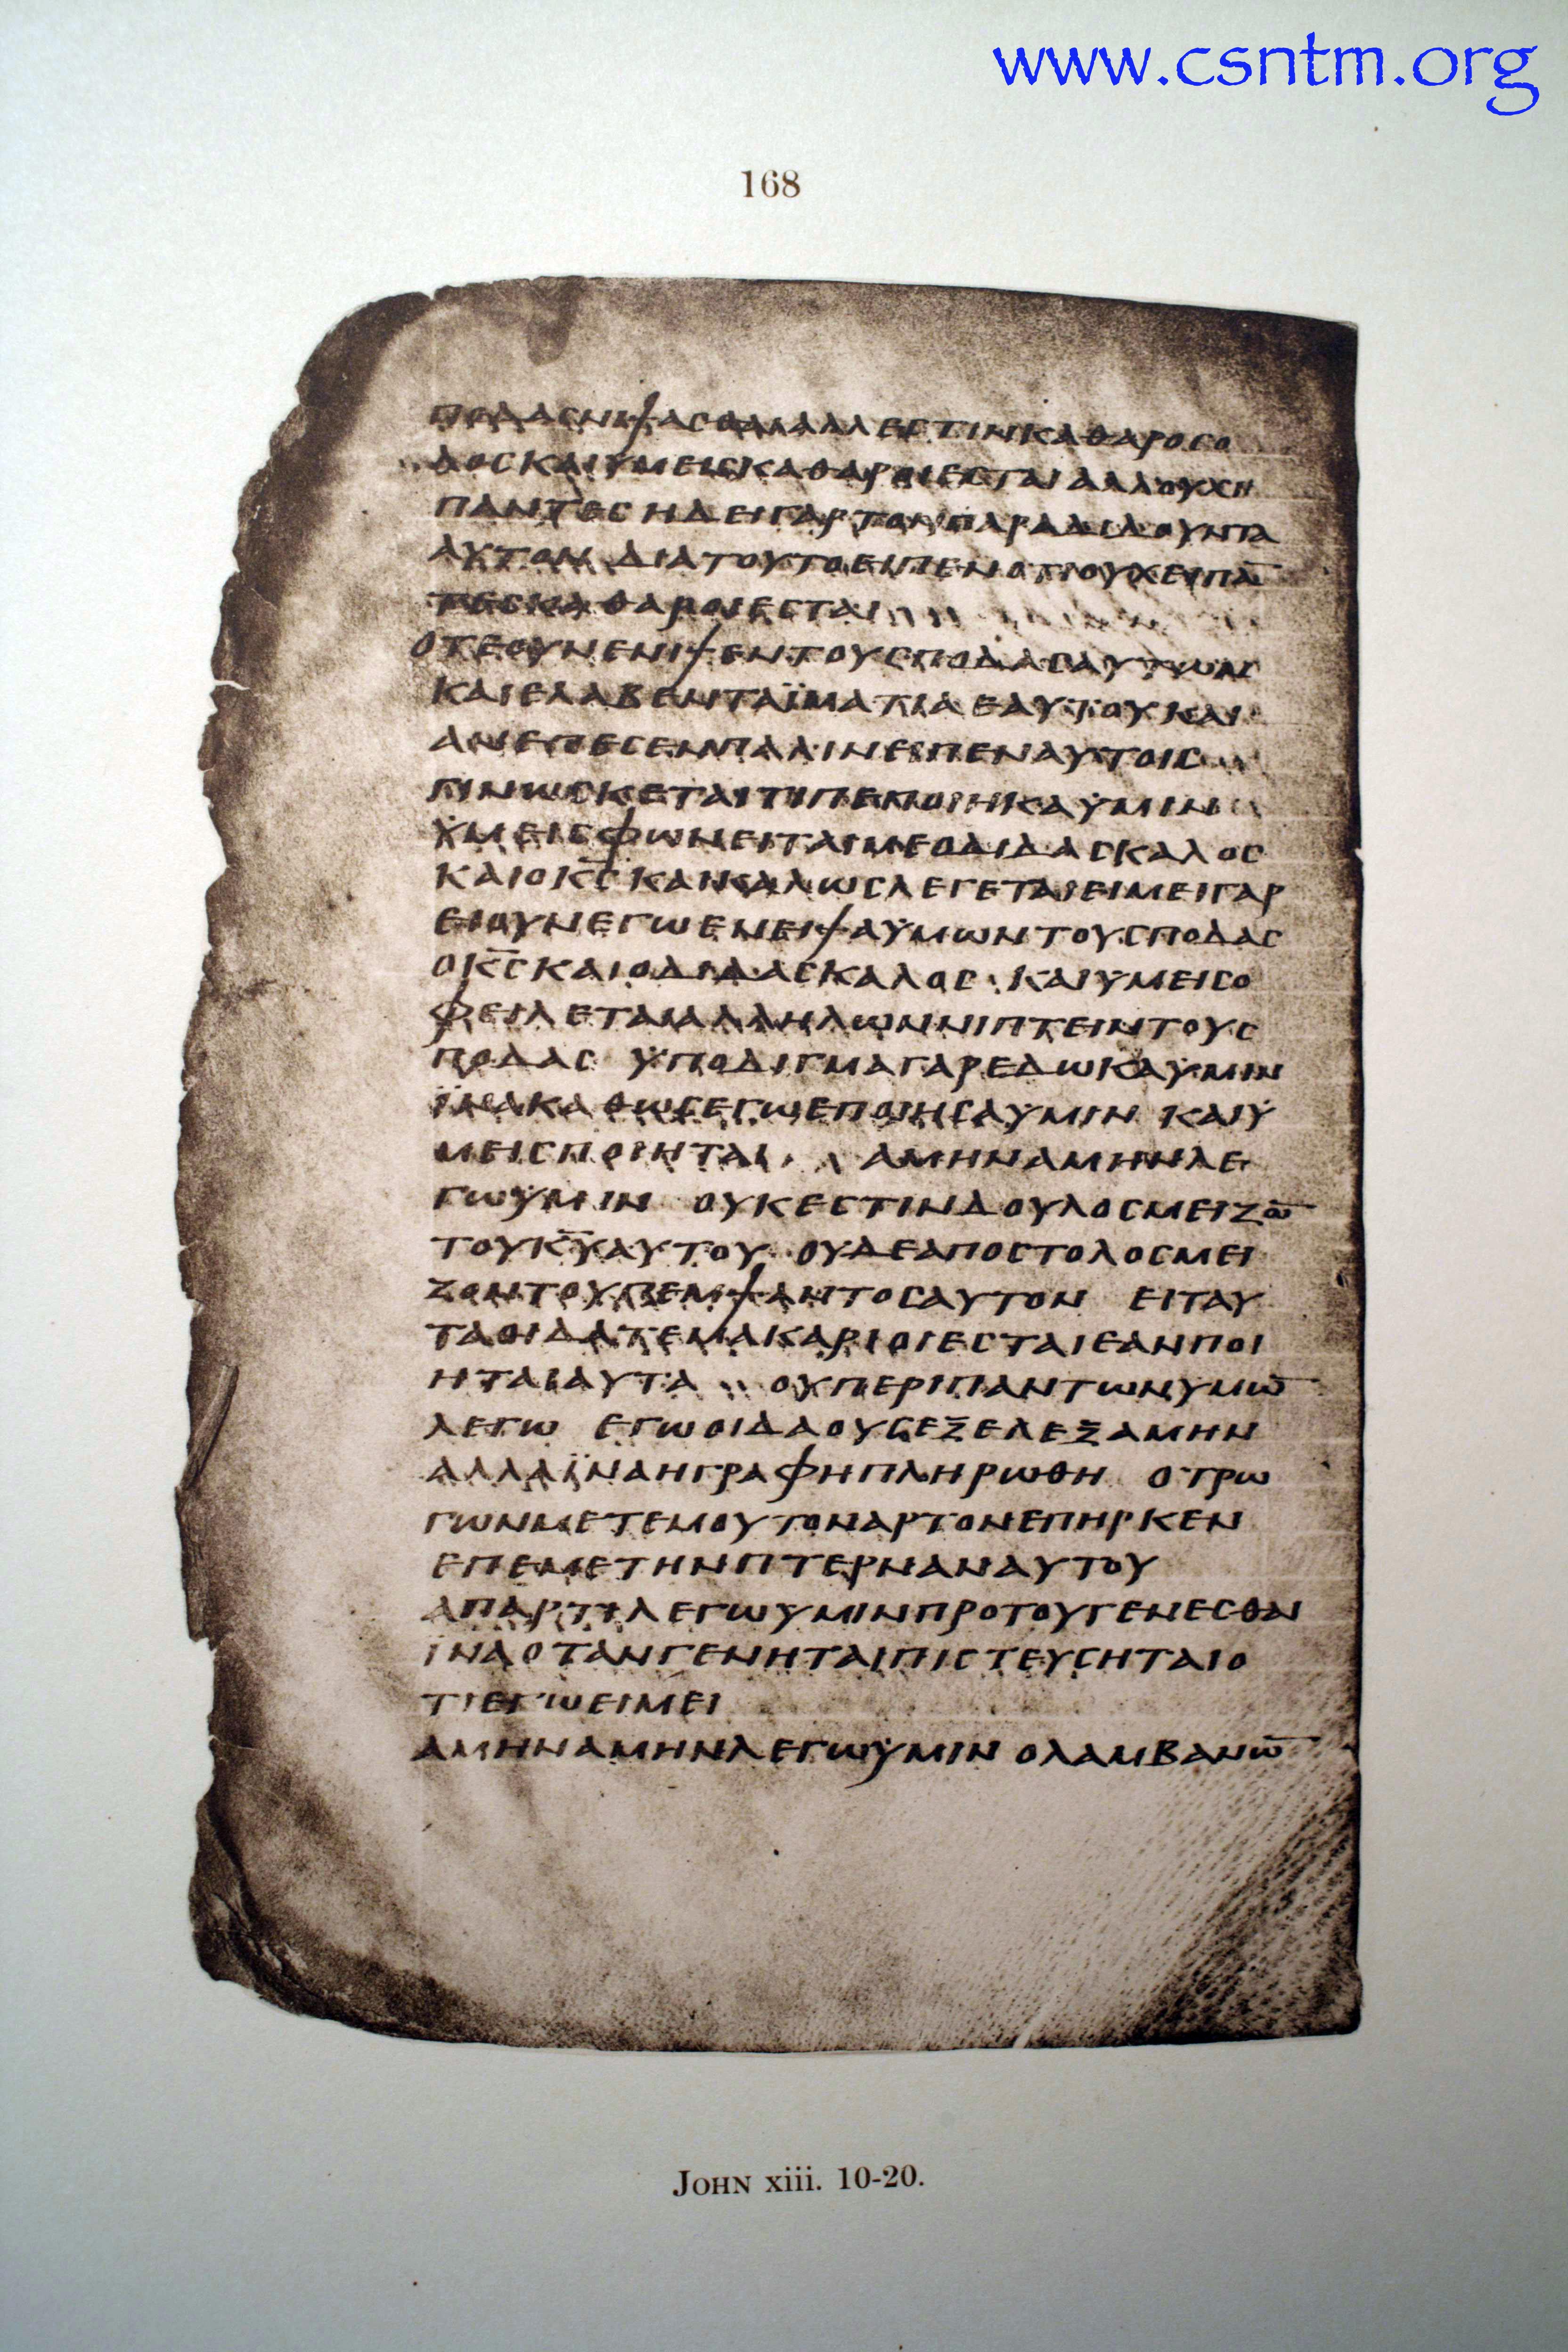 www.csntm.org
168
ΠΟΔΑCΝΙΨΑCΘΑΙΑΛΛΕCΤΙΝΚΑΘΑΡΟCΟ
ΛΟCΚΑΙΥΜΕΙCΚΑΘΑΡΟΙΕCΤΑΙΑΛΛΟΥΧΙ
ΠΑΝΤΕC ΗΔΕΙΓΑΡΤΟΝΠΑΡΑΔΙΔΟΥΝΤΑ
ΑΥΤΟΝ ΔΙΑΤΟΥΤΟΕΙΠΕΝΟΤΙΟΥΧΕΙΠΑ̅
ΤΕCΚΑΘΑΡΟΙΕCΤΑΙ
ΟΤΕΟΥΝΕΝΙΨΕΝΤΟΥCΠΟΔΑCΑΥΤΩΝ
ΚΑΙΕΛΑΒΕΝΤΑΪΜΑΤΙΑΕΑΥΤΟΥΚΑΙ
ΑΝΕΠΕCΕΝΠΑΛΙΝΕΙΠΕΝΑΥΤΟΙC
ΓΙΝΩCΚΕΤΑΙΤΙΠΕΠΟΙΗΚΑΫΜΙΝ
ΫΜΕΙCΦΩΝΕΙΤΑΙΜΕΟΔΙΔΑCΚΑΛΟC
ΚΑΙΟΚ̅C̅ΚΑΙΚΑΛΩCΛΕΓΕΤΑΙΕΙΜΕΙΓΑΡ
ΕΙΟΥΝΕΓΩΕΝΕΙΨΑΫΜΩΝΤΟΥCΠΟΔΑC
ΟΚ̅C̅ΚΑΙΟΔΙΔΑCΚΑΛΟC ΚΑΙΥΜΕΙCΟ
ΦΕΙΛΕΤΑΙΑΛΛΗΛΩΝΝΙΠΤΕΙΝΤΟΥC
ΠΟΔΑC ΫΠΟΔΙΓΜΑΓΑΡΕΔΩΚΑΫΜΙΝ
ΪΝΑΚΑΘΩCΕΓΩΕΠΟΙΗCΑΫΜΙΝ ΚΑΙΫ
ΜΕΙCΠΟΙΗΤΑΙ ΑΜΗΝΑΜΗΝΛΕ
ΓΩΫΜΙΝ ΟΥΚΕCΤΙΝΔΟΥΛΟCΜΕΙΖΩ̅
ΤΟΥΚ̅Υ̅ΑΥΤΟΥ ΟΥΔΕΑΠΟCΤΟΛΟCΜΕΙ
ΖΟΝΤΟΥΠΕΜΨΑΝΤΟCΑΥΤΟΝ ΕΙΤΑΥ
ΤΑΟΙΔΑΤΕΜΑΚΑΡΙΟΙΕCΤΑΙΕΑΝΠΟΙ
ΗΤΑΙΑΥΤΑ ΟΥΠΕΡΙΠΑΝΤΩΝΥΜΩ̅
ΛΕΓΩ ΕΓΩΟΙΔΑΟΥCΕΞΕΛΕΞΑΜΗΝ
ΑΛΛΑΪΝΑΗΓΡΑΦΗΠΛΗΡΩΘΗ ΟΤΡΩ
ΓΩΝΜΕΤΕΜΟΥΤΟΝΑΡΤΟΝΕΠΗΡΚΕΝ
ΕΠΕΜΕΤΗΝΠΤΕΡΝΑΝΑΥΤΟΥ
ΑΠΑΡΤΙΛΕΓΩΥΜΙΝΠΡΟΤΟΥΓΕΝΕCΘΑΙ
ΪΝΑΟΤΑΝΓΕΝΗΤΑΙΠΙCΤΕΥCΗΤΑΙΟ
ΤΙΕΓΩΕΙΜΕΙ
ΑΜΗΝΑΜΗΝΛΕΓΩΫΜΙΝ ΟΛΑΜΒΑΝΩ̅
JOHN xiii. 10-20.